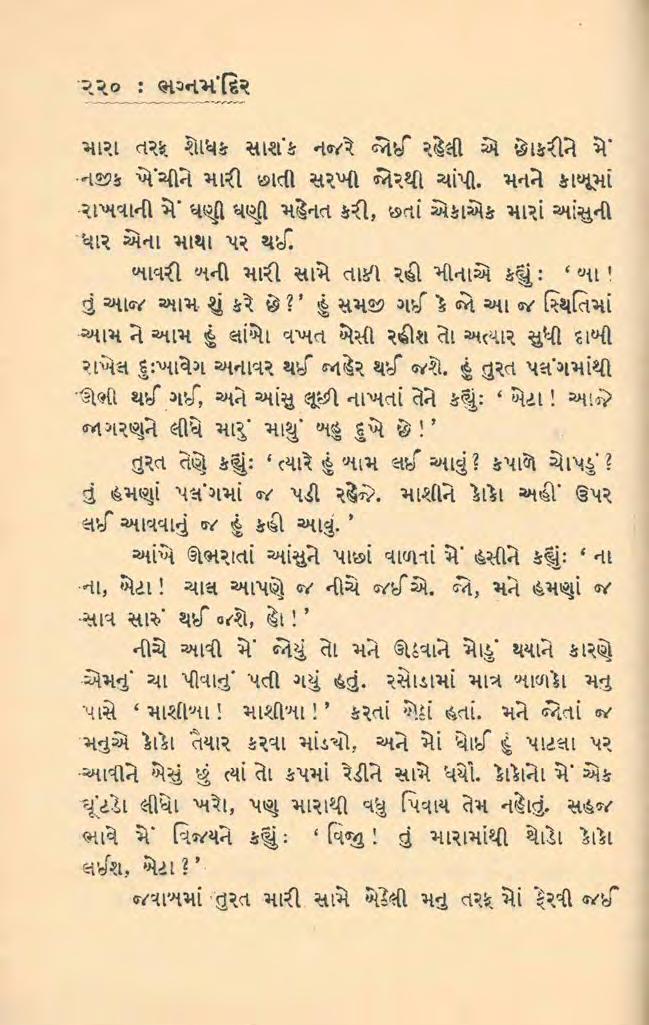 ૨૨૦ : ભગ્નમંદિર
મારા તરફ શોધક સાશંક નજરે જોઈ રહેલી એ છોકરીને મેં
નજીક ખેંચીને મારી છાતી સરખી જોરથી ચાંપી. મનને કાબૂમાં
રાખવાની મેં ઘણી ઘણી મહેનત કરી, છતાં એકાએક મારાં આંસુની
ધાર એના માથા પર થઈ.
બાવરી બની મારી સામે તાકી રહી મીનાએ કહ્યું: ‘ બા !
તું આજ આમ શું કરે છે ?’ હું સમજી ગઈ કે જો આ જ સ્થિતિમાં
આમ ને આમ હું લાંબો વખત બેસી રહીશ તો અત્યાર સુધી દાબી
રાખેલ દુઃખાવેગ અનાવર થઈ જાહેર થઈ જશે. હું તુરત પલંગમાંથી
ઊભી થઈ ગઈ, અને આંસુ લૂછી નાખતાં તેને કહ્યું: ‘ બેટા ! આજે
જાગરણને લીધે મારું માથું બહુ દુખે છે !’
તુરત તેણે કહ્યું: ‘ ત્યારે હું બામ લઈ આવું ? કપાળે ચોપડું ?
તું હમણાં પલંગમાં જ પડી રહેજે. માશીને કોકો અહીં ઉપર
લઈ આવવાનું જ હું કહી આવું. ’
આંખે ઊભરાતાં આંસુને પાછાં વાળતાં મેં હસીને કહ્યું: ‘ ના
ના, બેટા ! ચાલ આપણે જ નીચે જઈએ. જો, મને હમણાં જ
સાવ સારું થઈ જશે, હો ! ’
નીચે આવી મેં જોયું તો મને ઊઠવાને મોડું થયાને કારણે
એમનું ચા પીવાનું પતી ગયું હતું. રસોડામાં માત્ર બાળકો મનુ
પાસે ‘ માશીબા ! માશીબા !’ કરતાં બેઠાં હતાં. મને જોતાં જ
મનુએ કોકો તૈયાર કરવા માંડ્યો, અને મોં ધોઈ હું પાટલા પર
આવીને બેસું છું ત્યાં તો કપમાં રેડીને સામે ધર્યો. કોકોનો મેં એક
ઘૂંટડો લીધો ખરો, પણ મારાથી વધુ પિવાય તેમ નહોતું. સહજ
ભાવે મેં વિજયને કહ્યું: ‘ વિજુ ! તું મારામાંથી થોડો કોકો
લઈશ, બેટા ?’
જવાબમાં તુરત મારી સામે બેઠેલી મનુ તરફ મોં ફેરવી જઈ